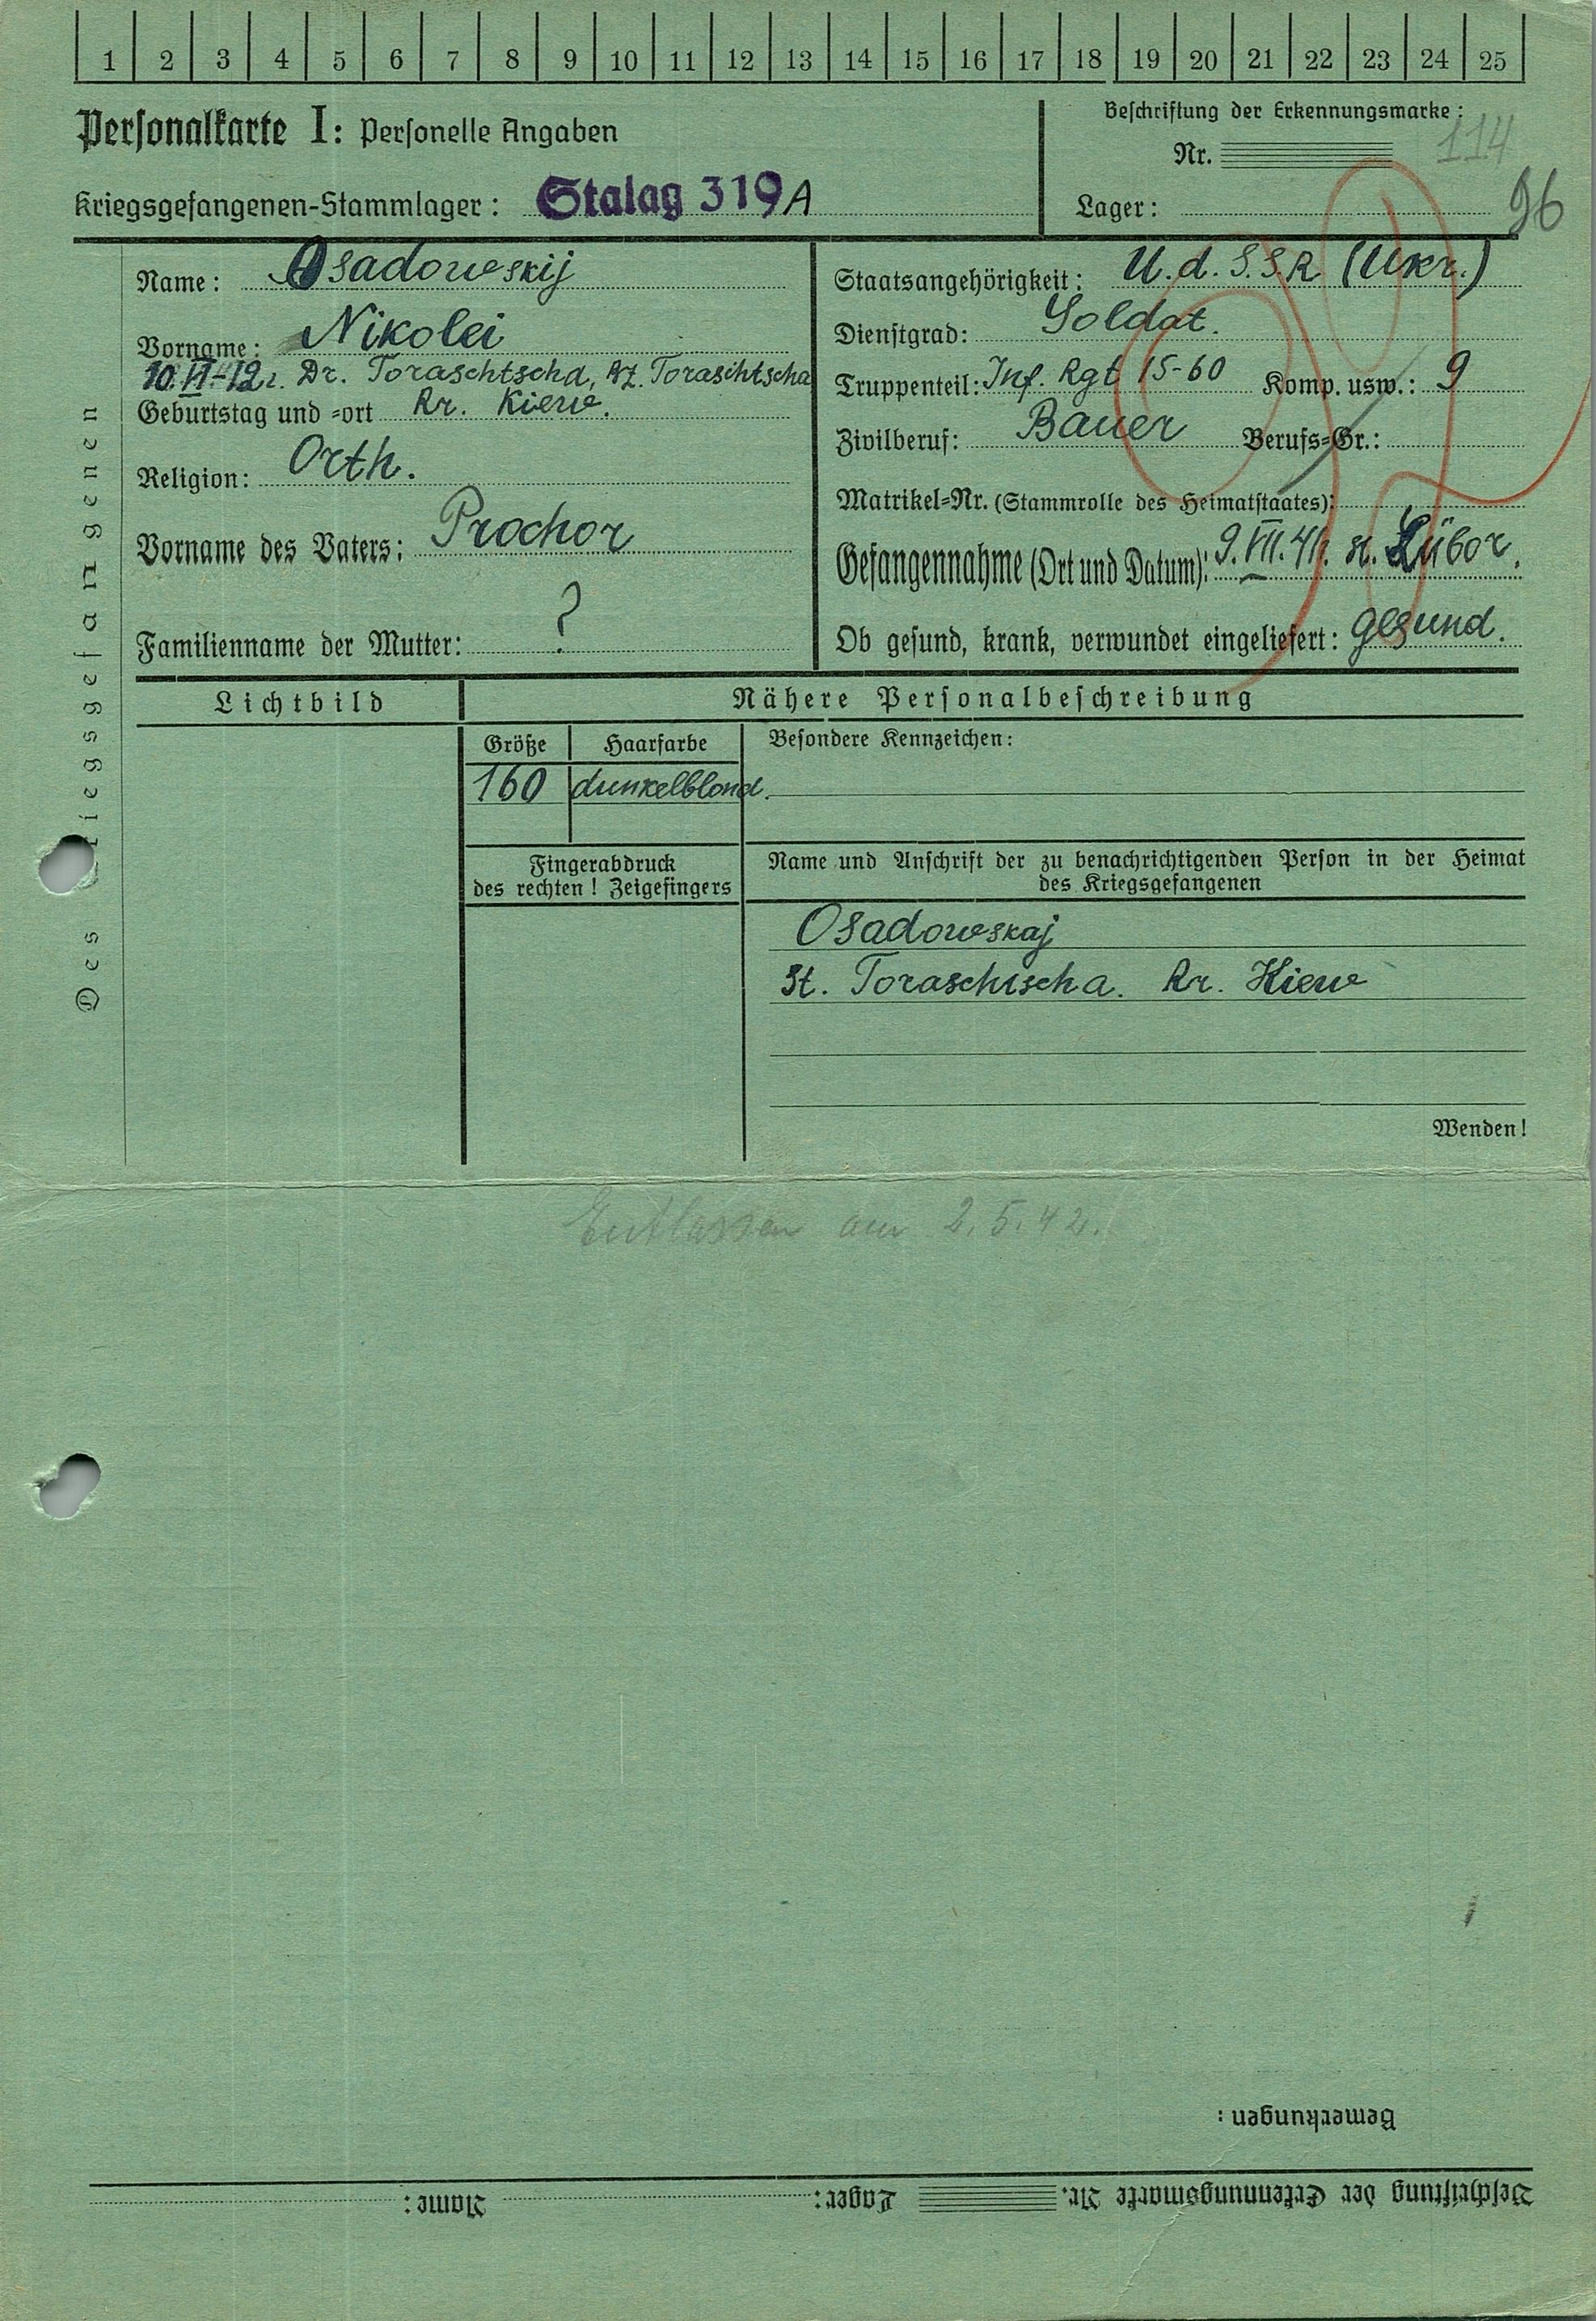 1 2 3 4 5 6 7 8 9 10 11 12 13 14 15 16 17 18 19 20 21 22 23 24 25
Personalkarte I: Personelle Angaben
Kriegsgefangenen-Stammlager: Stalag 319 A
Beschriftung der Erkennungsmarke:
114
Nr.
Lager:
96
Des Kriegsgefangenen
Name: Osadowskij
Vorname: Nikolei
10.VI.12. Dr. Toraschtscha, Rz. Toraschtscha
Geburtstag und =ort Kr. Kiew.
Religion: Orth.
Vorname des Vaters: Prochor
Familienname der Mutter: ?
Staatsangehörigkeit: U.d.S.S.R (Ukr.)
Dienstgrad: Soldat.
Truppenteil: Inf. Rgt 15-60 Komp. usw.: 9
Zivilberuf: Bauer Berufs=Gr.:
Matrikel=Nr. (Stammrolle des Heimatstaates):
Gefangennahme (Ort und Datum): 9.VII.41. Lübor.
Ob gesund, krank, verwundet eingeliefert: gesund.
Lichtbild
Nähere Personalbeschreibung
Größe Haarfarbe Besondere Kennzeichen:
160 dunkelblond.
Fingerabdruck
des rechten! Zeigefingers
Name und Anschrift der zu benachrichtigenden Person in der Heimat
des Kriegsgefangenen
Osadowskaj
St. Toraschtscha. Kr. Kiew
Wenden!
Entlassen am 2.5.42.
Bemerkungen:
Beschriftung der Erkennungsmarke Nr. Lager: Name: